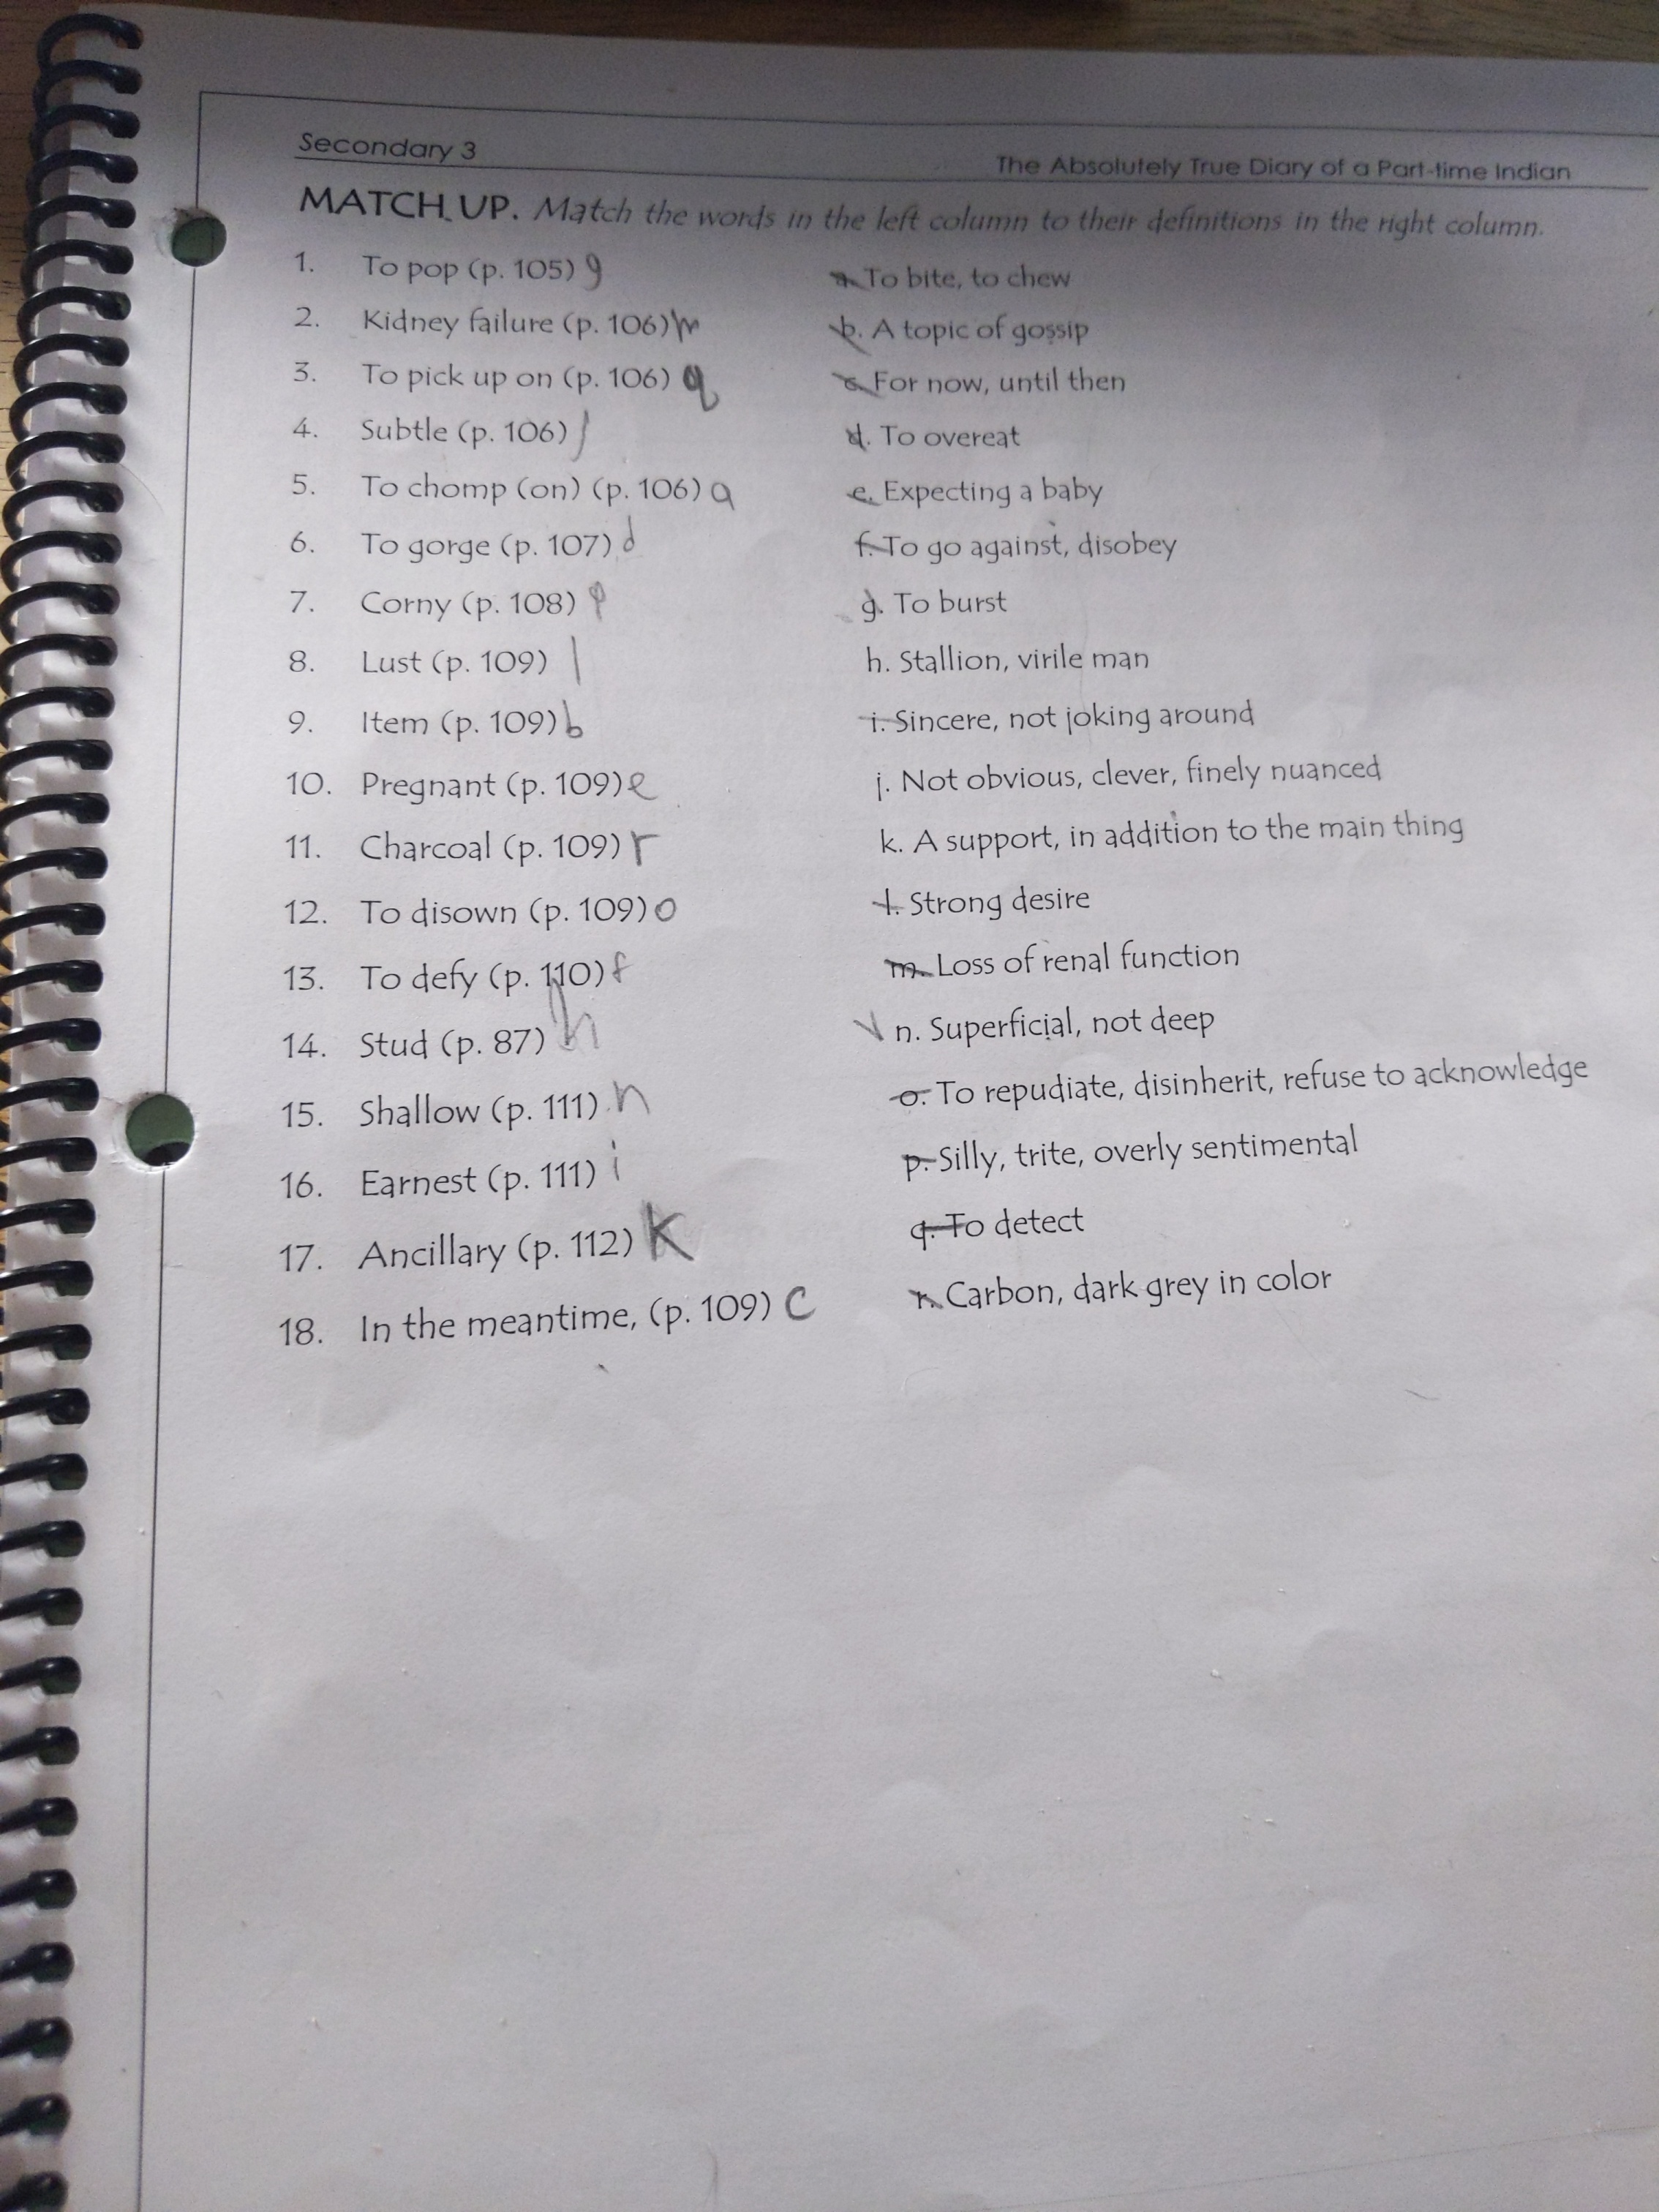 Secondary 3
The Absolutely True Diary of a Part-time Indian
MATCH UP. Match the words in the left column to their definitions in the right column.
1. To pop (p. 105) g
2. Kidney failure (p. 106) m
3. To pick up on (p. 106) q
4. Subtle (p. 106) j
5. To chomp (on) (p. 106) a
6. To gorge (p. 107) d
7. Corny (p. 108) p
8. Lust (p. 109) l
9. Item (p. 109) b
10. Pregnant (p. 109) e
11. Charcoal (p. 109) r
12. To disown (p. 109) o
13. To defy (p. 110) f
14. Stud (p. 87) h
15. Shallow (p. 111) n
16. Earnest (p. 111) i
17. Ancillary (p. 112) K
18. In the meantime, (p. 109) c
a. To bite, to chew
b. A topic of gossip
c. For now, until then
d. To overeat
e. Expecting a baby
f. To go against, disobey
g. To burst
h. Stallion, virile man
i. Sincere, not joking around
j. Not obvious, clever, finely nuanced
k. A support, in addition to the main thing
l. Strong desire
m. Loss of renal function
n. Superficial, not deep
o. To repudiate, disinherit, refuse to acknowledge
p. Silly, trite, overly sentimental
q. To detect
r. Carbon, dark grey in color